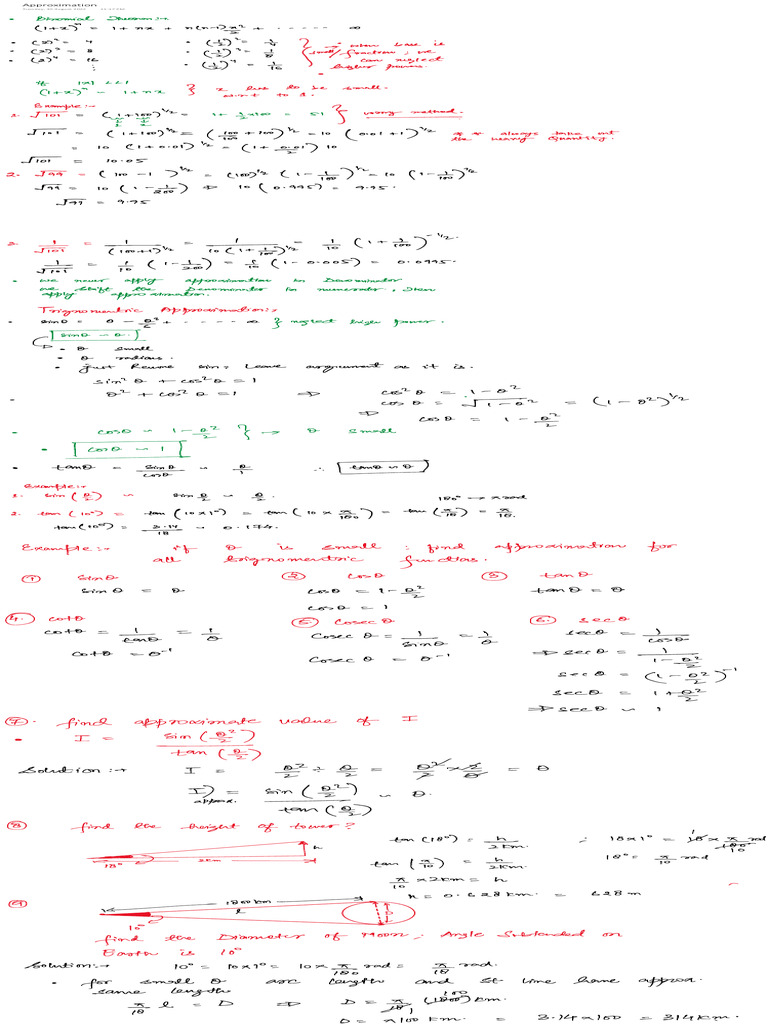 Approximation
Binomial Theorem:→
(1+x)^n = 1 + nx + n(n-1)x²/2 + ------ ∞
• (2)² = 4
• (2)³ = 8
• (2)⁴ = 16
• (1/2)² = 1/4
• (1/2)³ = 1/8
• (1/2)⁴ = 1/16
} → when base is small/fraction; we can neglect higher powers.
If |x| <<1
(1+x)^n = 1 + nx } x has to be small. w.r.t to 1.
Example:→
1. √101 = (1+100)^1/2 = 1 + 1/2 × 100 = 51 } wrong method.
√101 = (1+100)^1/2 = (100/100 + 100)^1/2 = 10 (0.01+1)^1/2
** always take out the heavy quantity.
= 10 (1+0.01)^1/2 = (1 + 0.01/2) 10
√101 = 10.05
2. √99 = (100-1)^1/2 = (100)^1/2 (1 - 1/100)^1/2 = 10 (1 - 1/100)^1/2
√99 = 10 (1 - 1/200) ⇒ 10 (0.995) = 9.95.
√99 = 9.95
3. 1/√101 = 1/(100+1)^1/2 = 1/10(1+1/100)^1/2 = 1/10 (1 + 1/100)^-1/2.
1/√101 = 1/10 (1 - 1/200) = 1/10 (1 - 0.005) = 0.0995.
• we never apply approximation in Denominator
we shift the Denominator to numerator, then apply approximation.
Trignometric Approximation:→
• sinθ = θ - θ³/6 + ------ ∞ } neglect higher power.
sinθ ~ θ.
• θ small
• θ radians.
• Just Remove sin, Leave argument as it is.
sin²θ + cos²θ = 1
θ² + cos²θ = 1 ⇒ cos²θ = 1-θ²
cosθ = √1-θ² = (1-θ²)^1/2
⇒ cosθ = 1 - θ²/2
• cosθ ~ 1 - θ²/2 } → θ small
• cosθ ~ 1
• tanθ = sinθ/cosθ ~ θ/1 ∴ tanθ ~ θ
Example:→
1. sin(θ/2) ~ sin θ/2 ~ θ/2.
180° → π rad
2. tan(10°) = tan(10×1°) = tan(10 × π/180) = tan(π/18) = π/18.
tan(10°) = 3.14/18 ~ 0.174.
Example:→ if θ is small; find approximation for all trignomentric functios.
① sinθ
sinθ = θ
② cosθ
cosθ = 1 - θ²/2
cosθ = 1
③ tanθ
tanθ = θ
④ cotθ
cotθ = 1/tanθ = 1/θ
cotθ = θ⁻¹
⑤ cosecθ
Cosecθ = 1/sinθ = 1/θ
Cosecθ = θ⁻¹
⑥ secθ
secθ = 1/cosθ
⇒ secθ = 1/1-θ²/2
secθ = (1-θ²/2)⁻¹
secθ = 1+θ²/2
⇒ secθ ~ 1
⑦. find approximate value of I
• I = sin(θ²/2)/tan(θ/2)
Solution:→ I = θ²/2 ÷ θ/2 = θ²/2 × 2/θ = θ
I)approx. = sin(θ²/2)/tan(θ/2) ~ θ.
⑧ find the height of tower?
18° 2km h
tan(18°) = h/2km
∴ 18×1° = 18 × π/180 rad
10
tan(π/10) = h/2km.
18° = π/10 rad
π/10 × 2km = h
h = 0.628km. = 628m
⑨ 1800km
l
D
10°
find the Diameter of Moon; Angle Subtended on Earth is 10°
Solution:→ 10° = 10×1° = 10 × π/180 rad = π/18 rad.
• for small θ arc length and st line have approx. same length
π/18 l = D ⇒ D = π/18 (1800) km.
100
D = π×100 km = 3.14×100 = 314km.